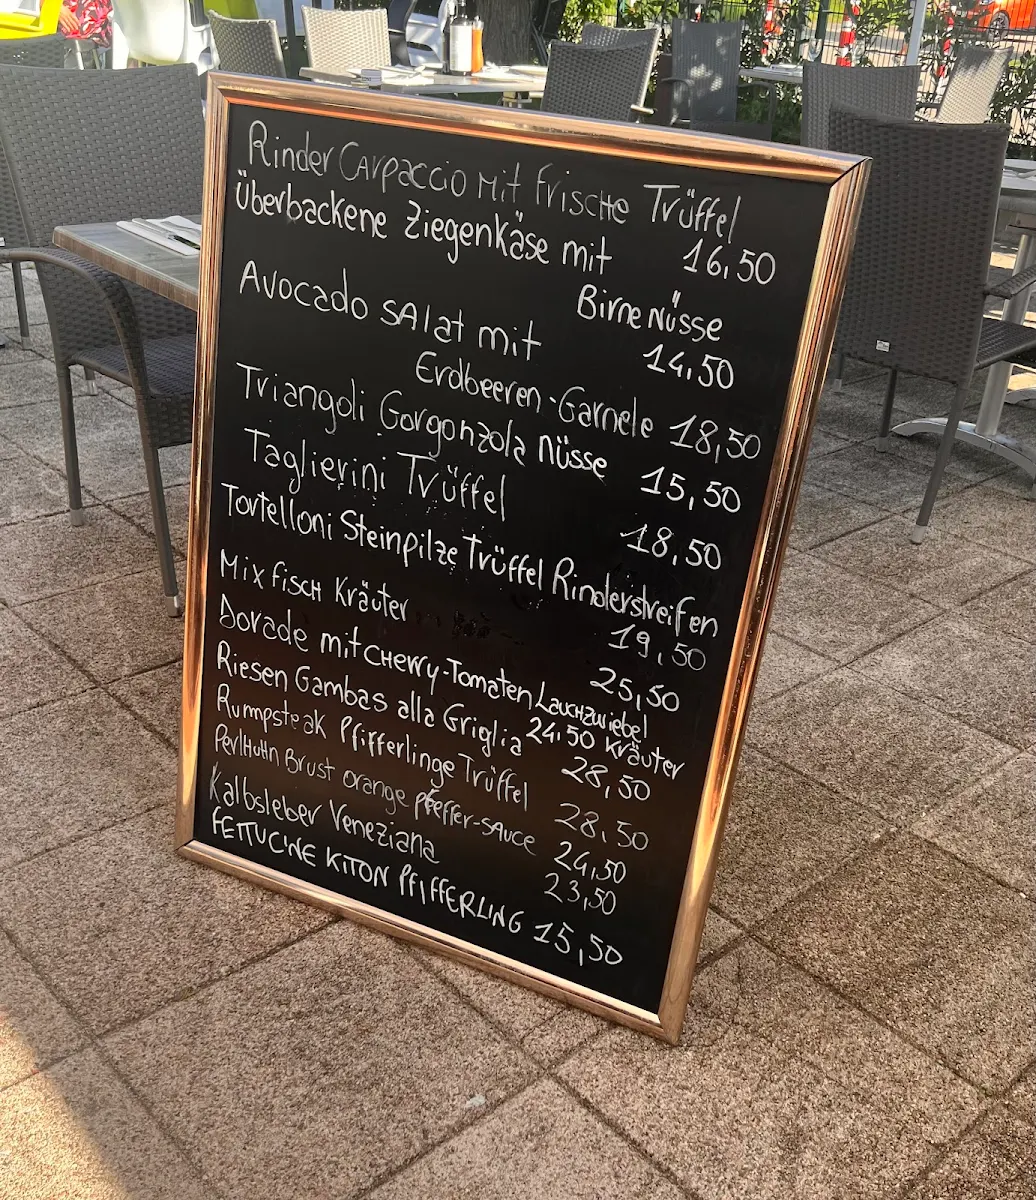 Rinder Carpaccio mit frische Trüffel
16,50
Überbackene Ziegenkäse mit
Birne Nüsse
14,50
Avocado salat mit
Erdbeeren-Garnele 18,50
Triangoli Gorgonzola Nüsse
15,50
Taglierini Trüffel
18,50
Tortelloni Steinpilze Trüffel Rinderstreifen
19,50
Mix fisch Kräuter
25,50
Dorade mit Cherry-Tomaten Lauchzwiebel
24,50 Kräuter
Riesen Gambas alla Griglia
28,50
Rumpsteak Pfifferlinge Trüffel
28,50
Perlhuhn Brust orange pfeffer-sauce
24,50
Kalbsleber Veneziana
23,50
FETTUCINE KITON PFIFFERLING 15,50